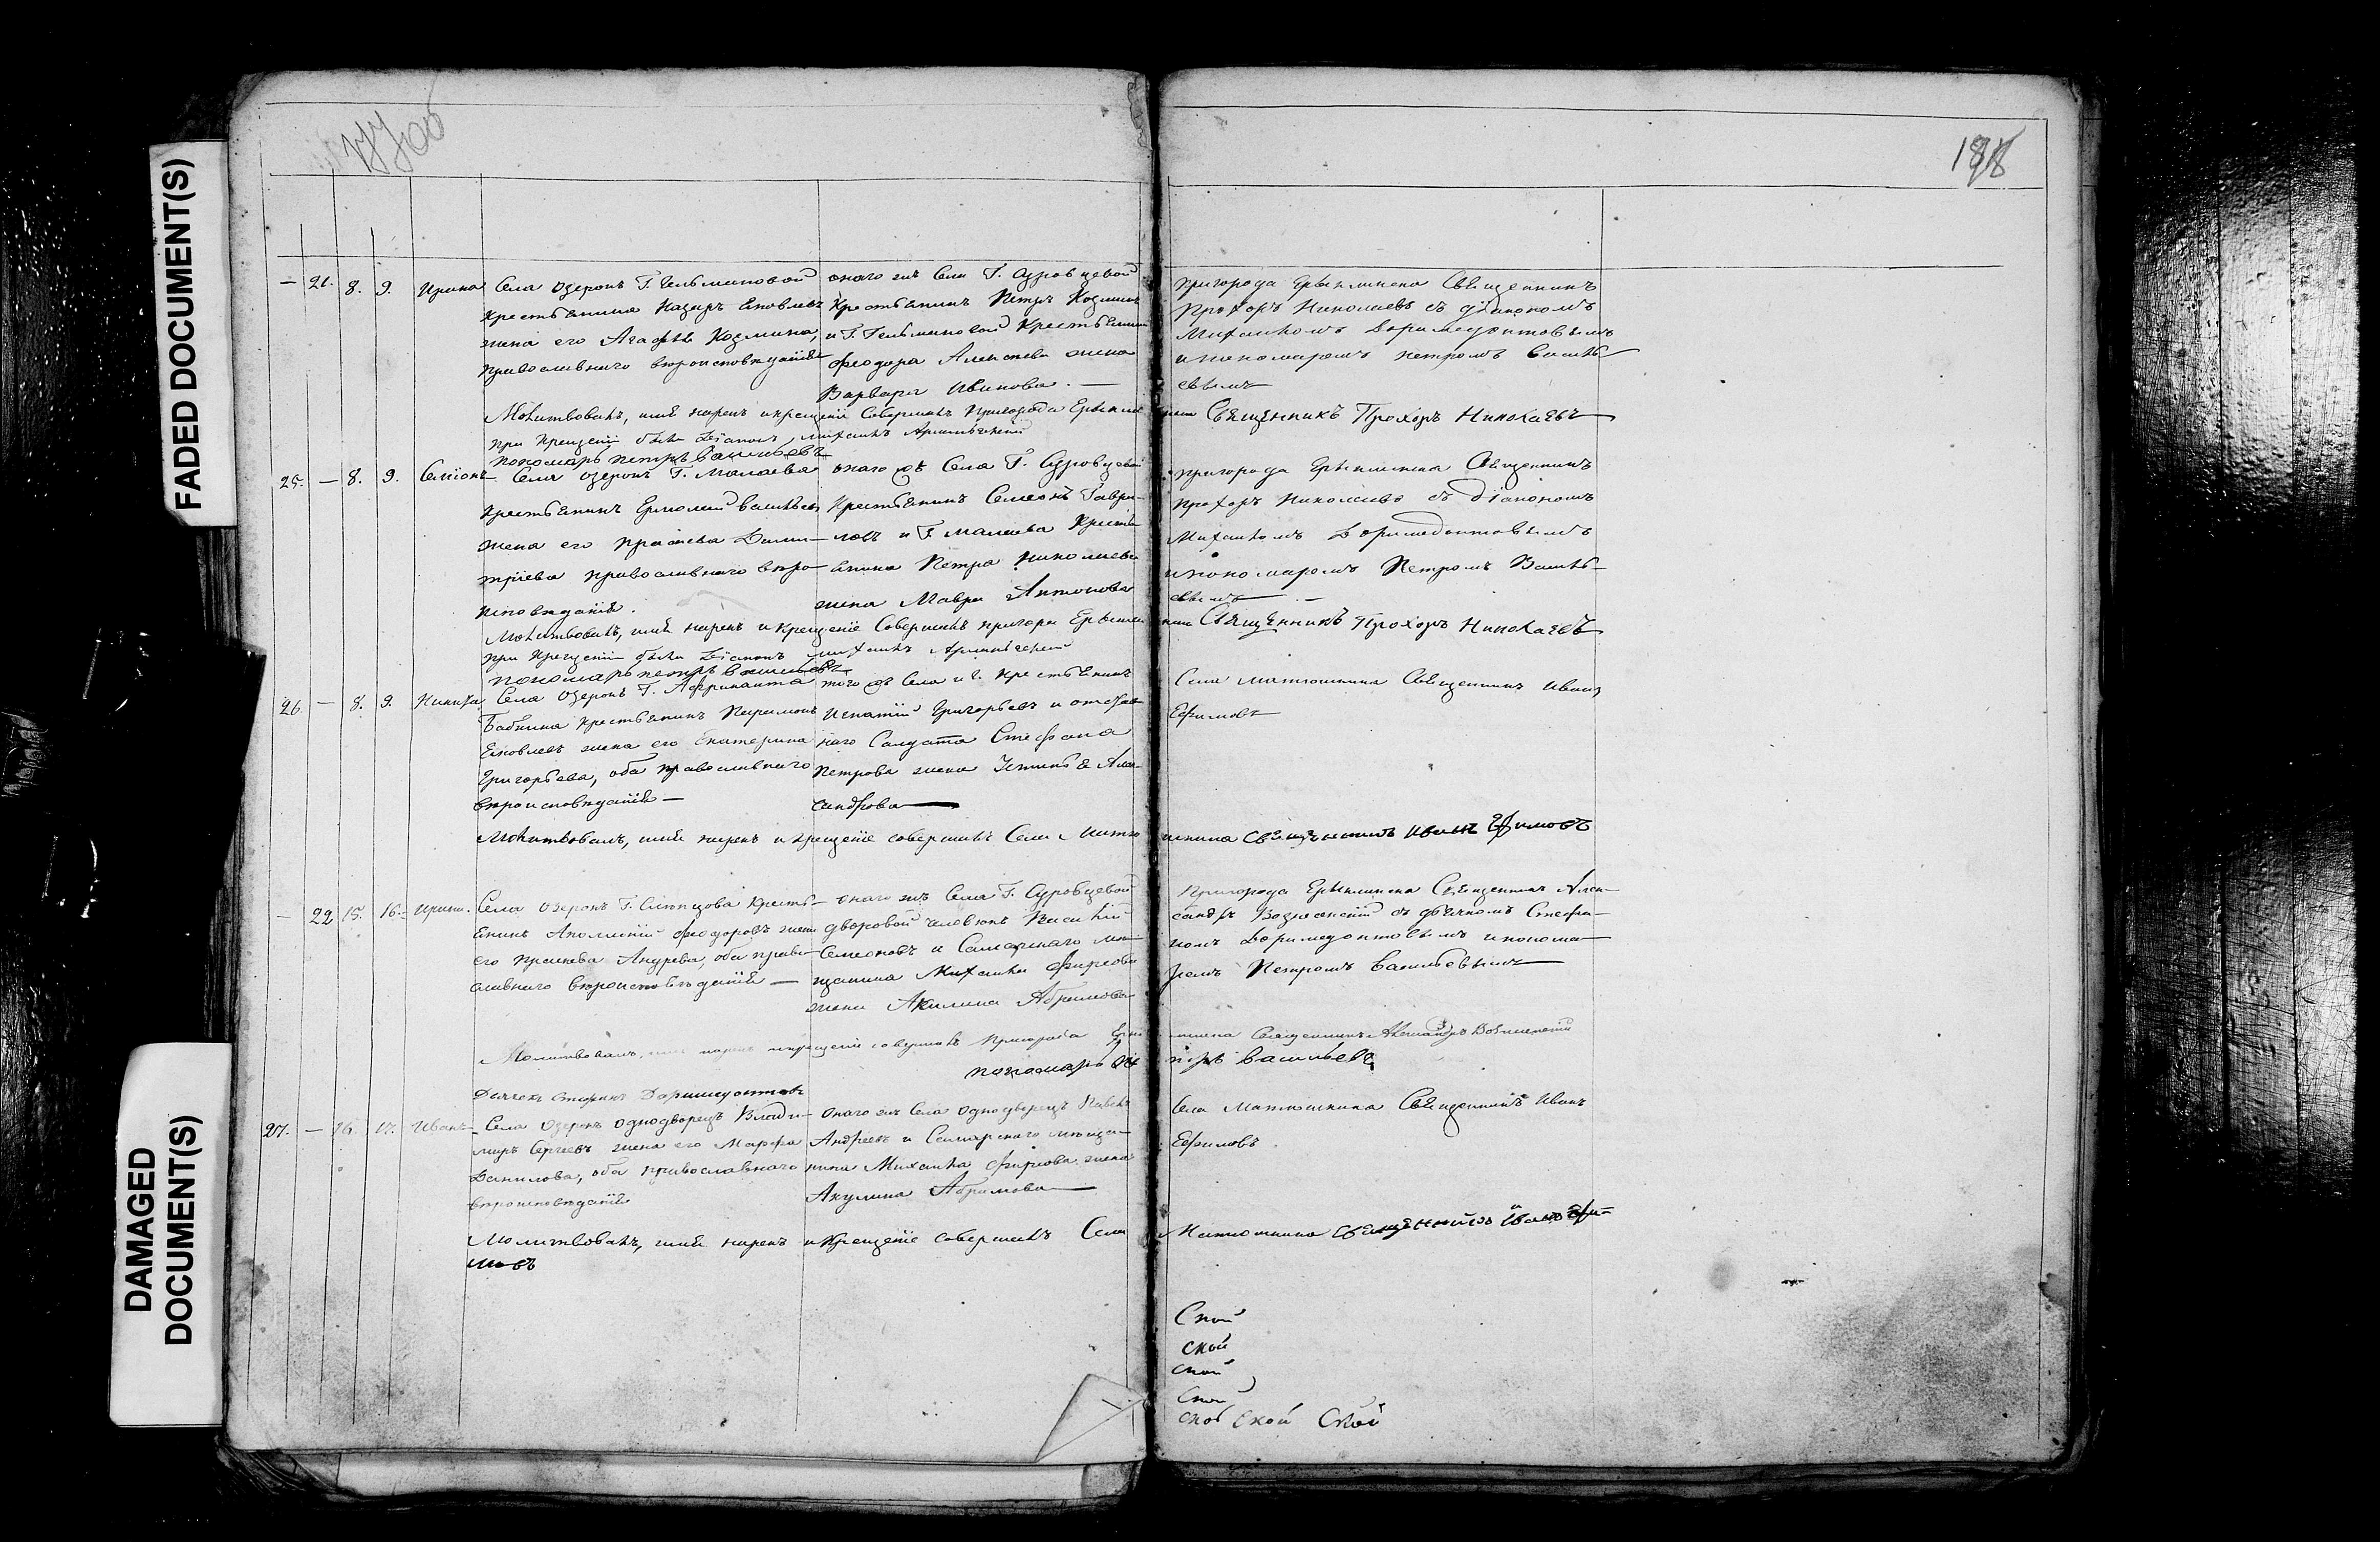 FADED DOCUMENT(S)
DAMAGED
DOCUMENT(S)
188
— 21. 8. 9. Ирина Села Озерокъ Г. Гельминовой
крестьянина Назаръ Яковлевъ
жена его Агафья Козмина,
православнаго вероисповеданія
онаго жъ Села Г. Суровцевой
Крестьянинъ Петръ Козминъ
и Г. Гельминовой Крестьянина
Феодора Алексеева жена
Варвара Иванова. —
пригорода Ерыклинска Священникъ
Прохоръ Николаевъ съ діакономъ
Михаиломъ Доримедонтовымъ
и пономаремъ Петромъ Василь
евымъ
Молитвовалъ, имя нарекъ и крещеніе Совершилъ Пригорода Ерыклин
Священникъ Прохоръ Николаевъ
при Крещеніи были Діаконъ Михаилъ
пономарь петръ Васильевъ
25. — 8. 9. Симіонъ Села Озерокъ Г. Малаева
крестьянинъ Ермолай Васильевъ
жена его Прасковья Дими-
тріева православнаго веро-
исповеданія.
онаго жъ Села Г. Суровцевой
Крестьянинъ Семенъ Гаври-
ловъ и Г. Малаева Кресть
янина Петра Николаева
жена Мавра Антонова
пригорода Ерыклинска Священникъ
Прохоръ Николаевъ съ діакономъ
Михаиломъ Доримедонтовымъ
и пономаремъ Петромъ Василь-
евымъ —
Молитвовалъ, имя нарекъ и крещеніе Совершилъ пригорода Ерыклин
Священникъ Прохоръ Николаевъ
при Крещеніи были Діаконъ Михаилъ
пономарь петръ Васильевъ
26. — 8. 9. Никита Села Озерокъ Г.
Бабкина крестьянинъ Парамонъ
Яковлевъ жена его Екатерина
Григорьева, оба православнаго
вероисповеданія —
того жъ Села и Г. Крестьянинъ
Игнатій Григорьевъ и отстав
наго Салдата Стефана
Петрова жена Устинья Алек-
сандрова —
Села Матюшкина Священникъ Иванъ
Ефимовъ
Молитвовалъ, имя нарекъ и крещеніе совершилъ Села Матю
шкина Священникъ Иванъ Ефимовъ
— 22 15. 16. Ирина. Села Озерокъ Г. Слепцова Кресть-
янинъ Феодоровъ жена
его Прасковья Андреева, оба право-
славнаго вероисповеданія —
онаго жъ Села Г. Суровцевой
дворовой человекъ Василій
Семеновъ и Самарскаго ме-
щанина Михаила Фирсова
жена Акилина Абрамова
Пригорода Ерыклинска Священникъ Алек-
сандръ Вознесенскій съ дьячкомъ Стефа-
номъ Доримедонтовымъ и понома-
ремъ Петромъ Васильевымъ
Молитвовалъ, имя нарекъ и крещеніе совершилъ Пригорода Ерык
линска Священникъ Александръ Вознесенскій
пономарь Пе
тръ Васильевъ
Дьячекъ Стефанъ Доримедонтовъ
27. — 16. 17. Иванъ Села Озерокъ однодворецъ Влади-
миръ Сергеевъ жена его Марфа
Данилова, оба православнаго
вероисповеданія
онаго жъ Села однодворецъ Павелъ
Андреевъ и Самарскаго меща-
нина Михаила Фирсова жена
Акулина Абрамова —
Села Матюшкина Священникъ Иванъ
Ефимовъ
Молитвовалъ, имя нарекъ и Крещеніе совершилъ Села
Матюшкина Священникъ Иванъ Ефи-
мовъ
Ской
ской
ской
Ской
ской Ской Ской